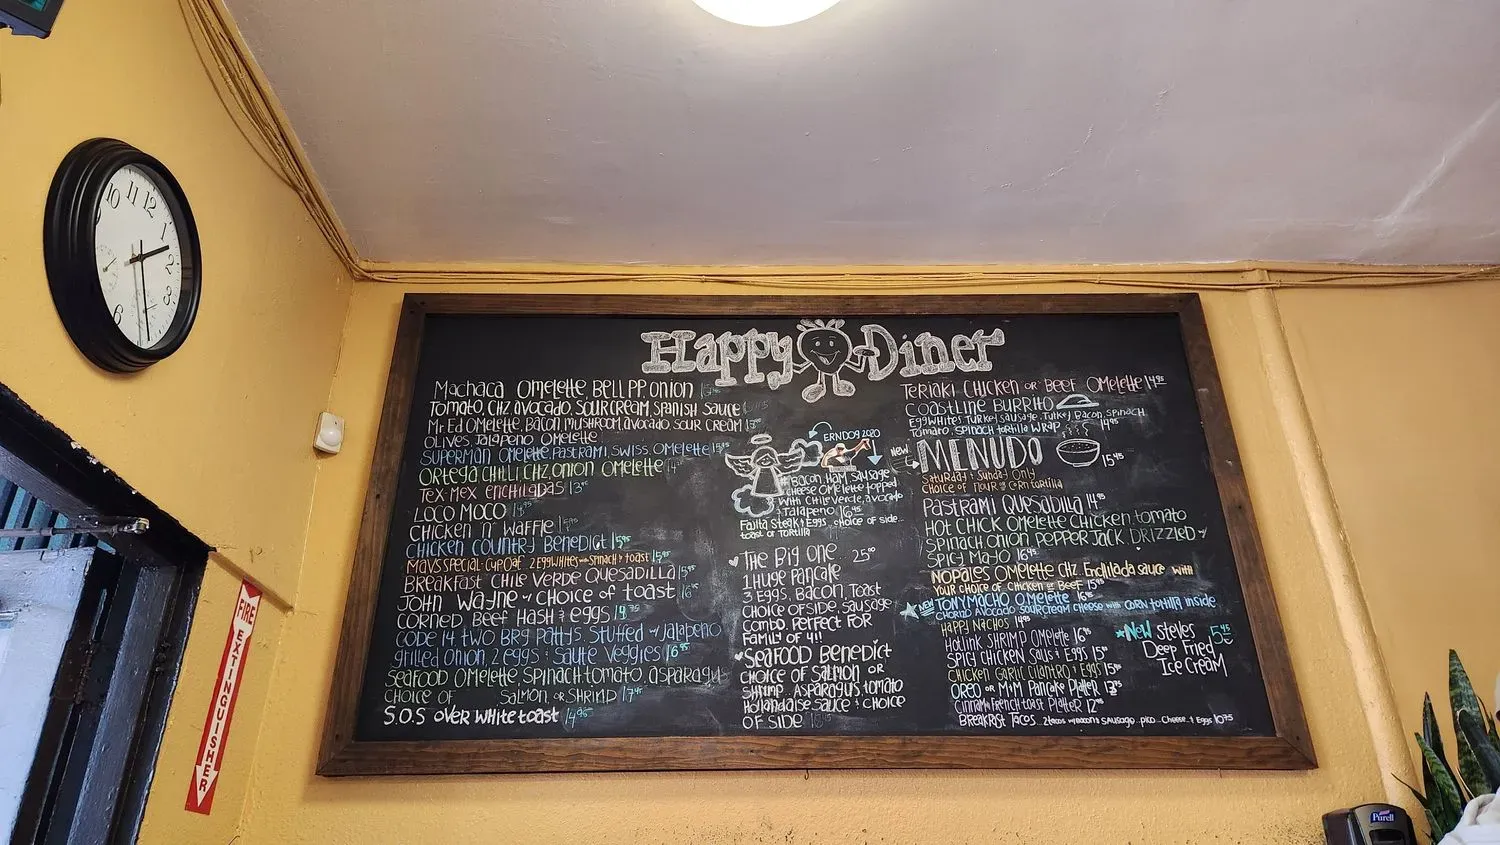 10 11 12 1 2 3 8
Happy Diner
Machaca Omelette Bell PP. Onion
Tomato, CHZ, avocado, sour cream, Spanish sauce
Mr Ed Omelette, Bacon, mushroom, avocado, sour cream
olives, Jalapeno Omelette
Superman Omelette, Pastrami, Swiss, Omelette
Ortega Chili, CHZ, Onion Omelette
Tex Mex enchiladas 13
Loco Moco
Chicken n' Waffle
Chicken Country Benedict 15.95
Mavs special Cup Oat 2 Egg Whites Spinach & toast 15.95
Breakfast Chile Verde Quesadilla 15.95
John Wayne w/ choice of toast 16
Corned Beef Hash & eggs
Code 14 Two BRG Pattys, Stuffed w/ Jalapeno
grilled onion, 2 eggs & saute Veggies 16.95
Seafood Omelette, Spinach tomato, asparagus
choice of Salmon, or Shrimp 17.95
S.O.S over white toast 14.95
ERNDOG 2020
Bacon, Ham, Sausage
cheese Omelette topped
with Chile Verde, avocado
Jalapeno 16.45
Fajita Steak & Eggs, choice of side...
toast or Tortilla
The Big One 25
1 Huge Pancake
3 Eggs, Bacon, Toast
choice of side. Sausage
combo. Perfect for
Family of 4!!
Seafood Benedict
choice of Salmon or
Shrimp. Asparagus, tomato
Hollandaise sauce & choice
of side
Teriaki Chicken or Beef Omelette 14.95
Coastline Burrito
Egg whites, Turkey Sausage, Turkey Bacon, Spinach
Tomato, Spinach tortilla wrap 14.95
New
MENUDO 15.45
Saturday & Sunday Only
Choice of Flour or Corn tortilla
Pastrami Quesadilla 14.95
Hot Chick Omelette Chicken, tomato
Spinach Onion Pepper Jack Drizzled w/
Spicy Mayo 16.45
Nopales Omelette CHZ. Enchilada sauce with
your choice of Chicken or Beef 15.95
New
Tonymacho Omelette 16.95
Chorizo Avocado sour cream cheese with corn tortilla inside
Happy Nachos 14.95
Hotlink Shrimp Omelette 16.95
Spicy Chicken Saus & Eggs 15
Chicken Garlic Cilantro & Eggs 15.95
Oreo or M+M Pancake Platter
Cinnamon French toast Platter 12
Breakfast Tacos.. 2 tacos w/ Bacon & Sausage.. Pico.. Cheese & Eggs 10.75
New Steves 5.45
Deep Fried
Ice Cream
FIRE
EXTINGUISHER
Purell